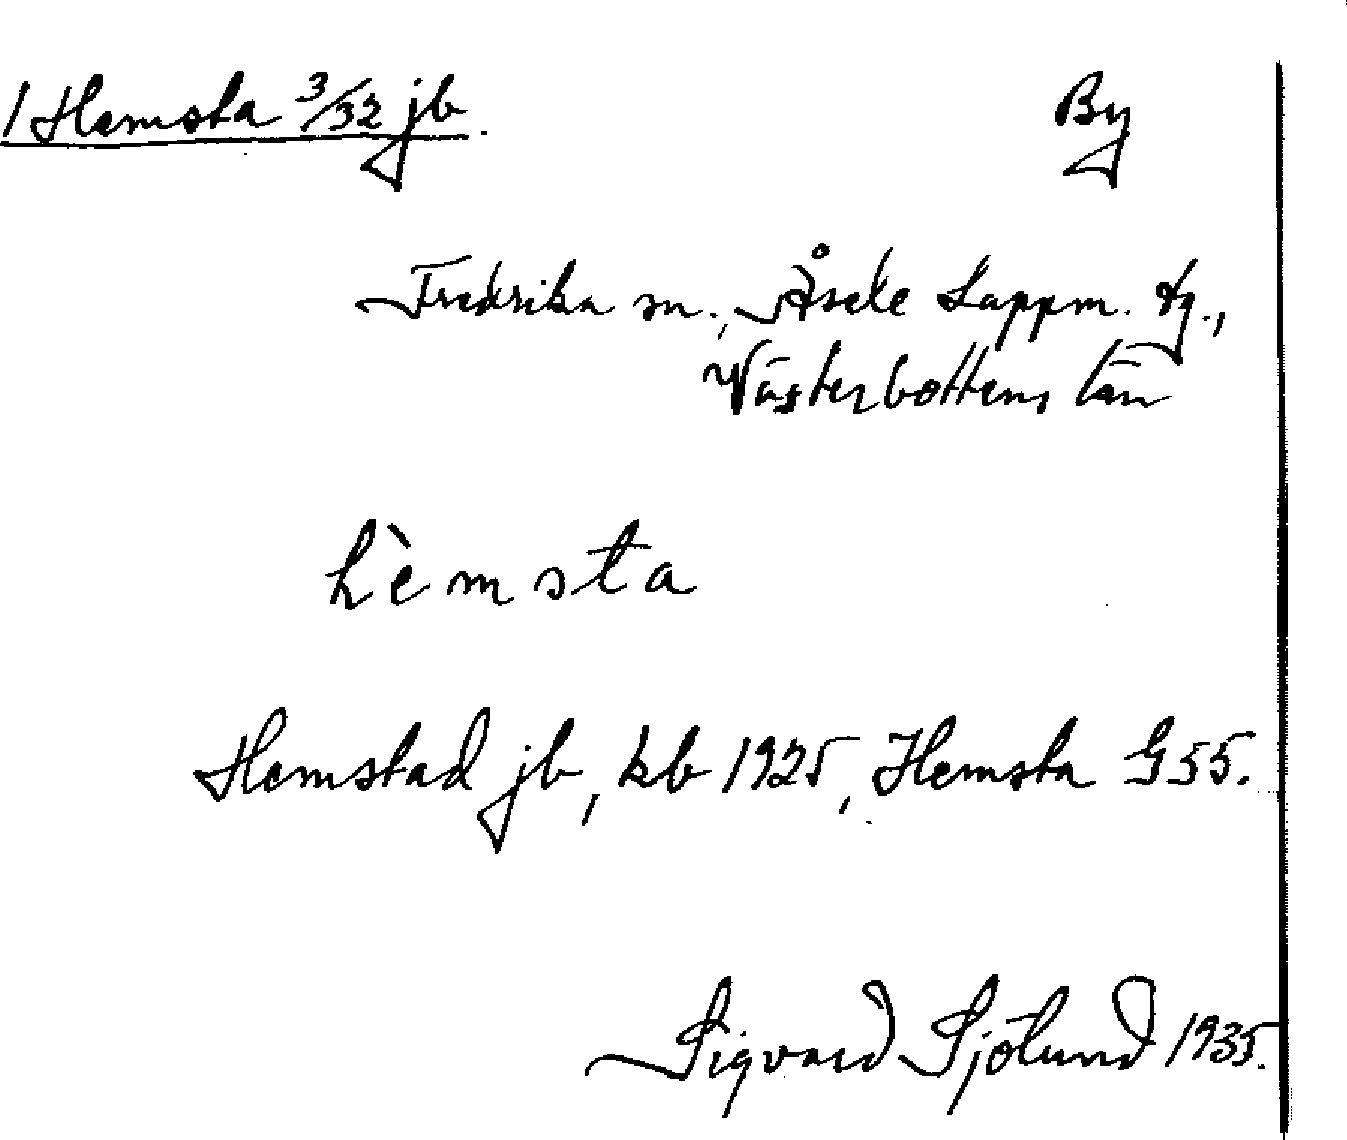 1 Hemsta 3/32 jb. By
Fredrika sn., Åsele Lappm. tg.,
Västerbottens län
hèmsta
Hemstad jb, kb 1925, Hemsta G55.
Sigvard Sjölund 1935.